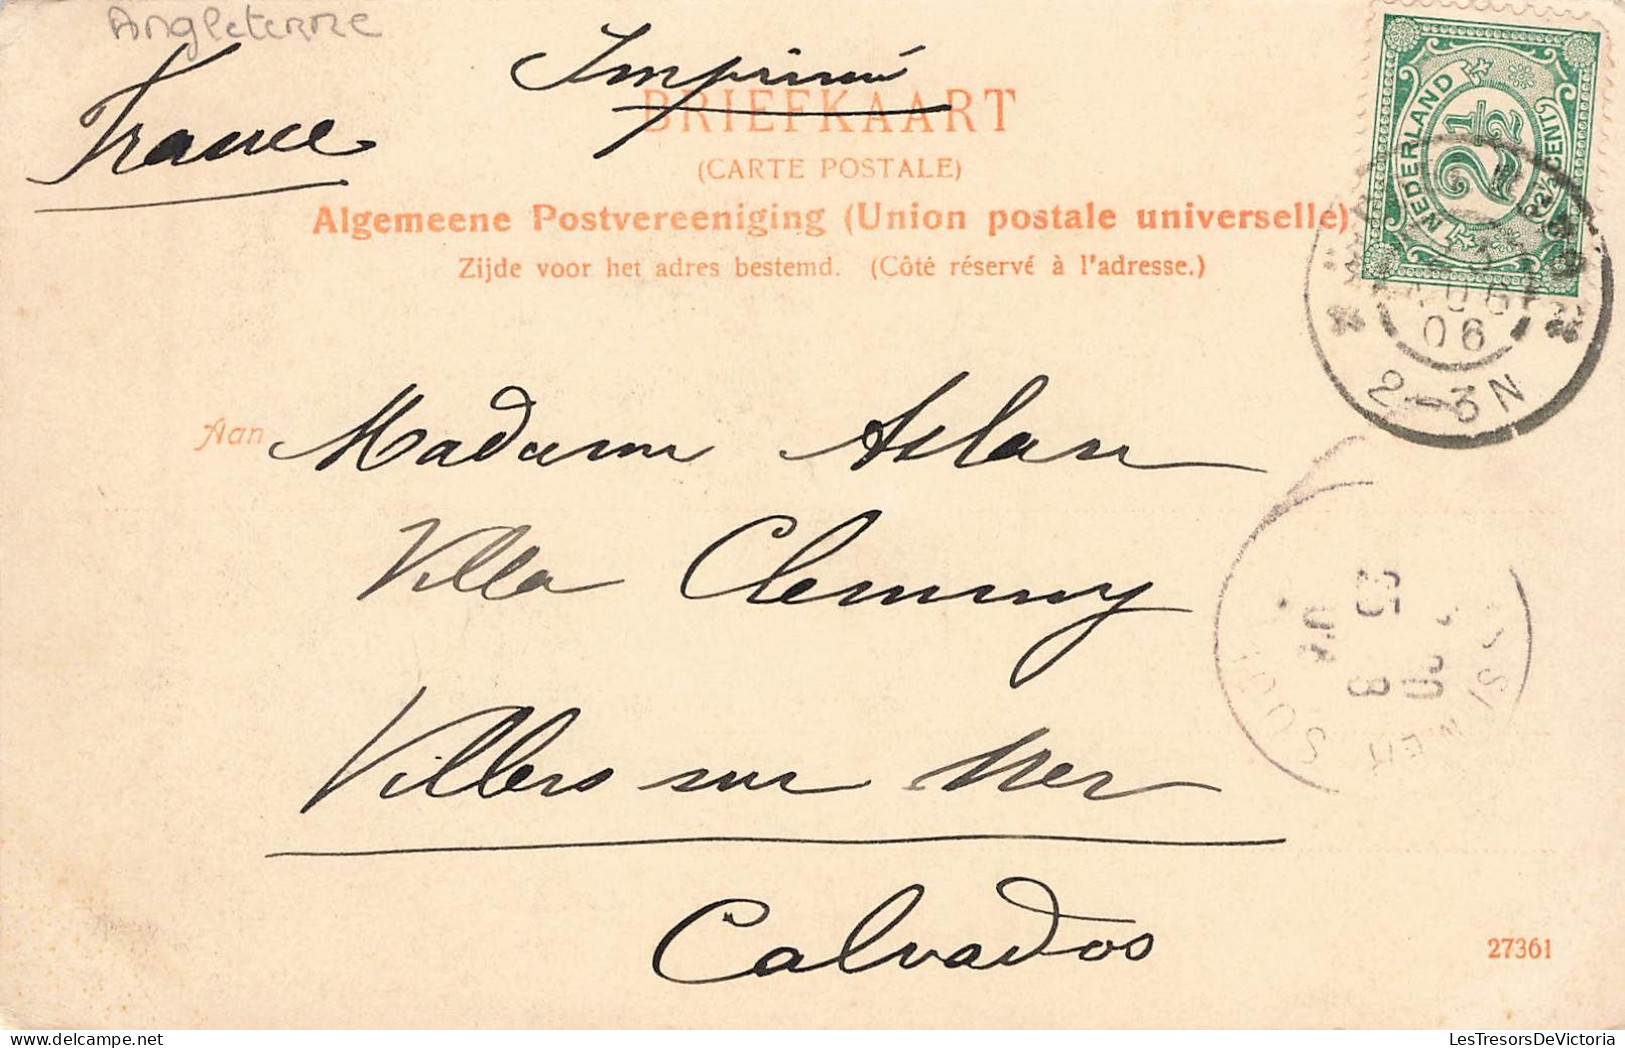 Angleterre
France
Imprimé
BRIEFKAART
(CARTE POSTALE)
Algemeene Postvereeniging (Union postale universelle)
Zijde voor het adres bestemd. (Côté réservé à l'adresse.)
NEDERLAND
2½
2½ CENT
06
2-3N
Aan Madame Aslan
Villa Clemmy
Villers sur Mer
Calvados
25
27361
LesTresorsDeVictoria